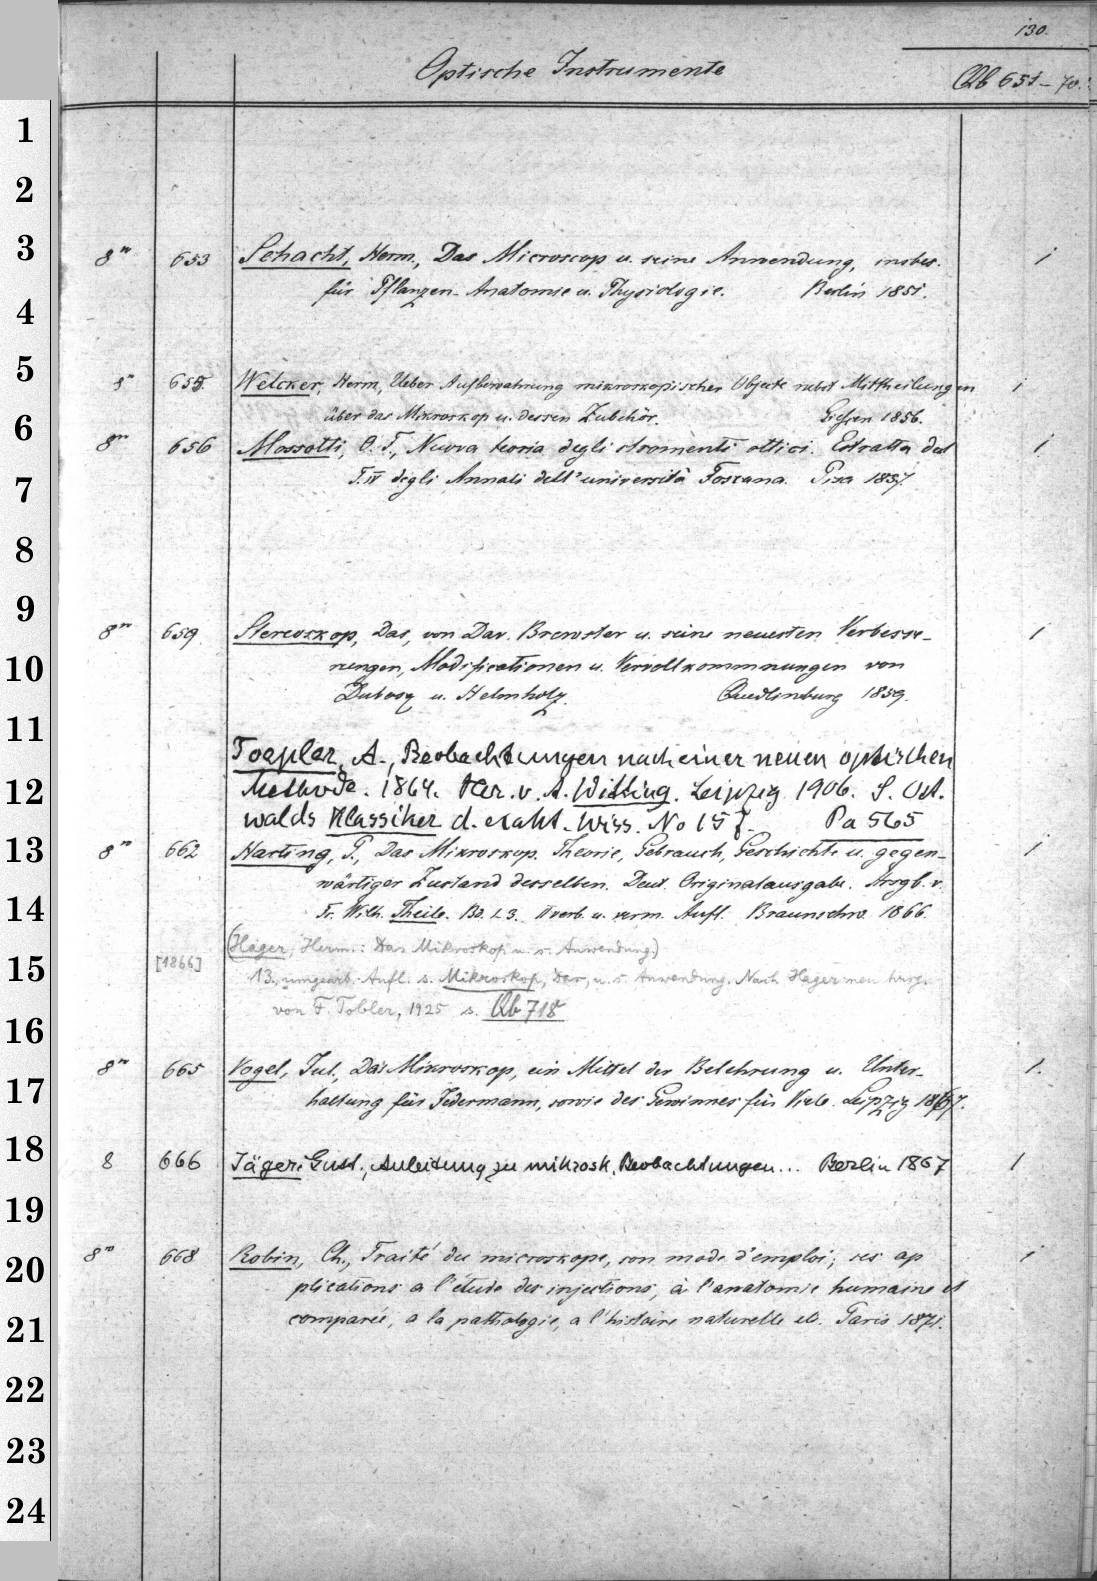 130.
Optische Instrumente
Qb 651-70
8º 653 Schacht, Herm., Das Microscop u. seine Anwendung, insbes. 1
für Pflanzen-Anatomie u. Physiologie. Berlin 1851.
8º 655. Welcker, Herm, Ueber Aufbewahrung mikroskopischer Objecte nebst Mittheilungen 1
über das Mikroskop u. dessen Zubehör. Giessen 1856.
8º 656 Mossotti, O. F., Nuova teoria degli stromenti ottici. Estratta dal 1
T. IV degli Annali dell'università Toscana. Pisa 1857.
8º 659. Stereoskop, Das, von Dav. Brewster u. seine neuesten Verbesse- 1
rungen, Modificationen u. Vervollkommnungen von
Duboscq u. Helmholz. Quedlinburg 1859.
Toepler, A., Beobachtungen nach einer neuen optischen
Methode. 1864. Her. v. A. Witting. Leipzig 1906. S. Ost-
walds Klassiker d. exakt. Wiss. No 157. Pa 565
8º 662 Harting, P., Das Mikroskop. Theorie, Gebrauch, Geschichte u. gegen- 1
wärtiger Zustand desselben. Deut. Originalausgabe. Hrsgb. v.
Fr. Wilh. Theile. Bd. 1-3. II verb. u. verm. Aufl. Braunschw. 1866.
(Hager, Herm.: Das Mikroskop u. s. Anwendung.)
[1866] 13., umgearb. Aufl. s. Mikroskop, Das, u. s. Anwendung. Nach Hager neu hrsg.
von F. Tobler, 1925 s. Qb 718
8º 665 Vogel, Jul., Das Mikroskop, ein Mittel der Belehrung u. Unter- 1.
haltung für Jedermann, sowie des Gewinnes für Viele. Leipzig 1867.
8 666 Jäger: Gust., Anleitung zu mikrosk. Beobachtungen... Berlin 1867 1
8º 668 Robin, Ch., Traité du microscope, son mode d'emploi; ses ap 1
plications a l'étude des injections, à l'anatomie humaine et
comparée, a la pathologie, a l'histoire naturelle etc. Paris 1871.
1
2
3
4
5
6
7
8
9
10
11
12
13
14
15
16
17
18
19
20
21
22
23
24